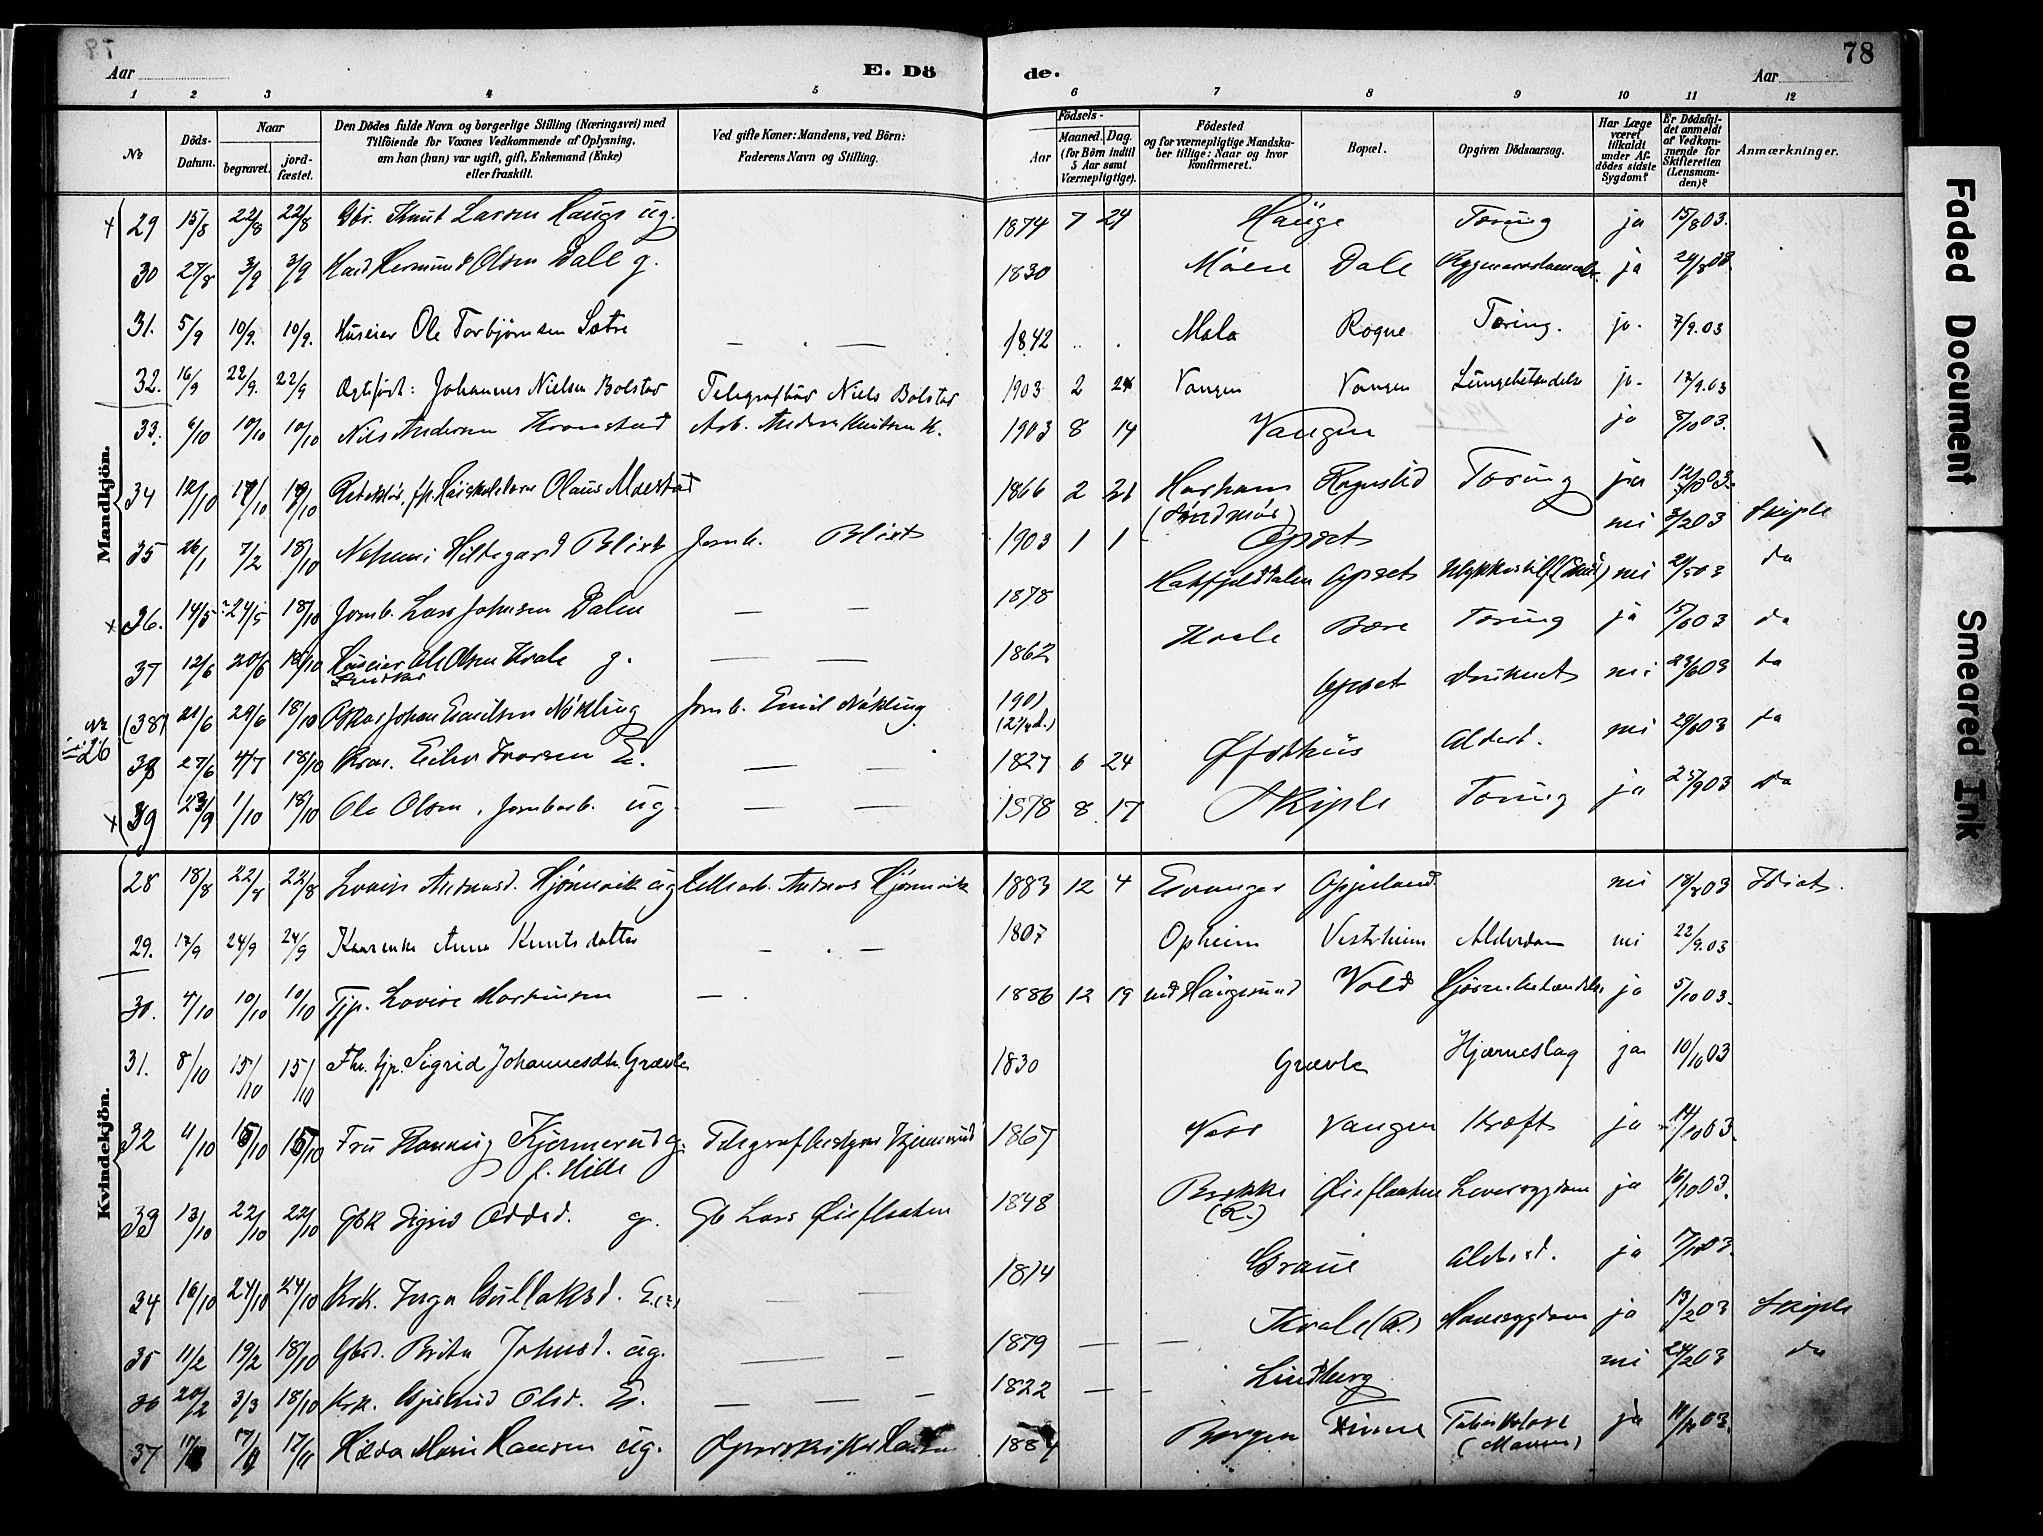 78
Aar
E. Dö
de.
Aar
1 2 3 4 5 6 7 8 9 10 11 12
No
Döds-Datum.
Naar
begravet.
jordfæstet.
Den Dödes fulde Navn og borgerlige Stilling (Næringsvei) med
Tilföiende for Voxnes Vedkommende af Oplysning,
om han (hun) var ugift, gift, Enkemand (Enke)
eller fraskilt.
Ved gifte Koner: Mandens, ved Börn:
Faderens Navn og Stilling.
Födsels-
Aar
Maaned.
Dag.
(for Börn indtil
5 Aar samt
Værnepligtige).
Födested
og for værnepligtige Mandskaber tillige: Naar og hvor
konfirmeret.
Bopæl.
Opgiven Dödsaarsag.
Har Læge
været
tilkaldt
under Afdödes sidste
Sygdom?
Er Dödsfaldet anmeldt
af Vedkommende for
Skifteretten
(Lensmanden)?
Anmærkninger.
Mandkjön.
+ 29 15/8 22/8 22/8 Gbr. Knut Larsen Hauge ug. 1874 7 24 Hauge Tæring ja 15/8 03.
30 27/8 3/9 3/9 Olsen Dale g. 1830 Möen Dale ja
31. 5/9 10/9. 10/9. Huseier Ole Torbjørnsen Sætre — . — 1842 .. . Mala Rogne Tæring. ja. 7/9.03
32. 16/9 22/9. 22/9 Ægtefødt: Johannes Nielsen Bolstad Telegrafbud Niels Bolstad 1903 2 24 Vangen Vangen Lungebetændelse ja. 17/9.03
33. 6/10 10/10 10/10 Nils Andersen Kronstad Arb. Anders Knutsen K. 1903 8 14 Vangen ja 8/10 03.
34 12/10 17/10 17/10 Olaus Moestad 1866 2 Harham (Søndmør) Rognslid Tæring ja 03.
35 26/1 7/2 18/10 Hildegard Blixt Jernb. Blixt 1903 1 1 Opset nei 3/2 03 Skiple
+ 36. 14/5 24/5 18/10 Jernb. Lars Johnsen Dalen — — 1878 Hatfjelddalen Opset nei 03 do
37 12/6 20/6 18/10 Huseier Ole Olsen Kvale g. — — 1862 Kvale Børe Tæring ja 15/6 03 do
(38) 21/6 29/6 18/10 Oskar Johan Emilsen Nökling Jernb. Emil Nökling 1901 Opset druknet nei 23/6 03 do
26
38 27/6 4/7 18/10 Eilev Ivarsen E. — — 1827 6 24 Alderd. nei 29/6 03 do
+ 39 23/9 1/10 18/10 Ole Olsen, Jernbarb. ug. — — 1878 8 17 Skiple Tæring ja 25/9 03 do
Kvindekjön.
28 18/8 22/8 22/8 Lovise Andreasd. Hjönnevik ug Andreas Hjönnevik 1883 12 4 Evanger Gjejeland nei 18/8 03 Idiot.
29. 17/9 24/9 24/9 Kaarenke Anna Knutsdatter — . — 1807 Opheim Vestrheim Alderdom nei 22/9.03
30. 4/10 10/10 10/10 Tjp. Lovise Martinsen — . 1886 12 19 ved Haugesund Vold Hjærnebetændelse ja 5/10 03.
31. 8/10 15/10 15/10 Fhv. tjp. Sigrid Johannesdtr. Grævle 1830 Grævle Hjærneslag ja 10/10 03
32 4/10 15/10 15/10 Fru Hanna Kjernerud g. f. Hille Telegrafbestyrer Kjernerud 1867 Voss Vangen Kræft ja 14/10 03.
33 13/10 22/10 22/10 Gbk Sigrid Oddsd. g. Gb Lars Øieflaaten 1848 Brekke (R.) Øieflaaten Leversygdom ja 16/10 03.
34 16/10 24/10 24/10 Krk. Inga Gullaksd. E. — — 1814 Graue Alderd. ja 03.
35 11/2 19/2 18/10 Gbd. Brita Johnsd. ug. — — 1879 — — Kvale (R.) Mavesygdom ja 13/2 03 Skiple
36 20/2 3/3 18/10 Krk. Gjertrud Olsd. E. — — — 1822 — - Lindberg nei 24/2 03 do
37 17/11 Hilda Marie Hansen ug. Hansen Bergen Finne Tuberkulose (Maven) ja 03.
Faded Document
Smeared Ink